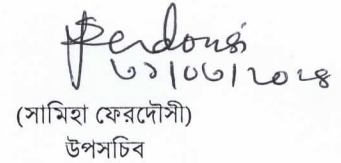 Ferdousi
৩১/০৩/২০২৪
(সামিহা ফেরদৌসী)
উপসচিব